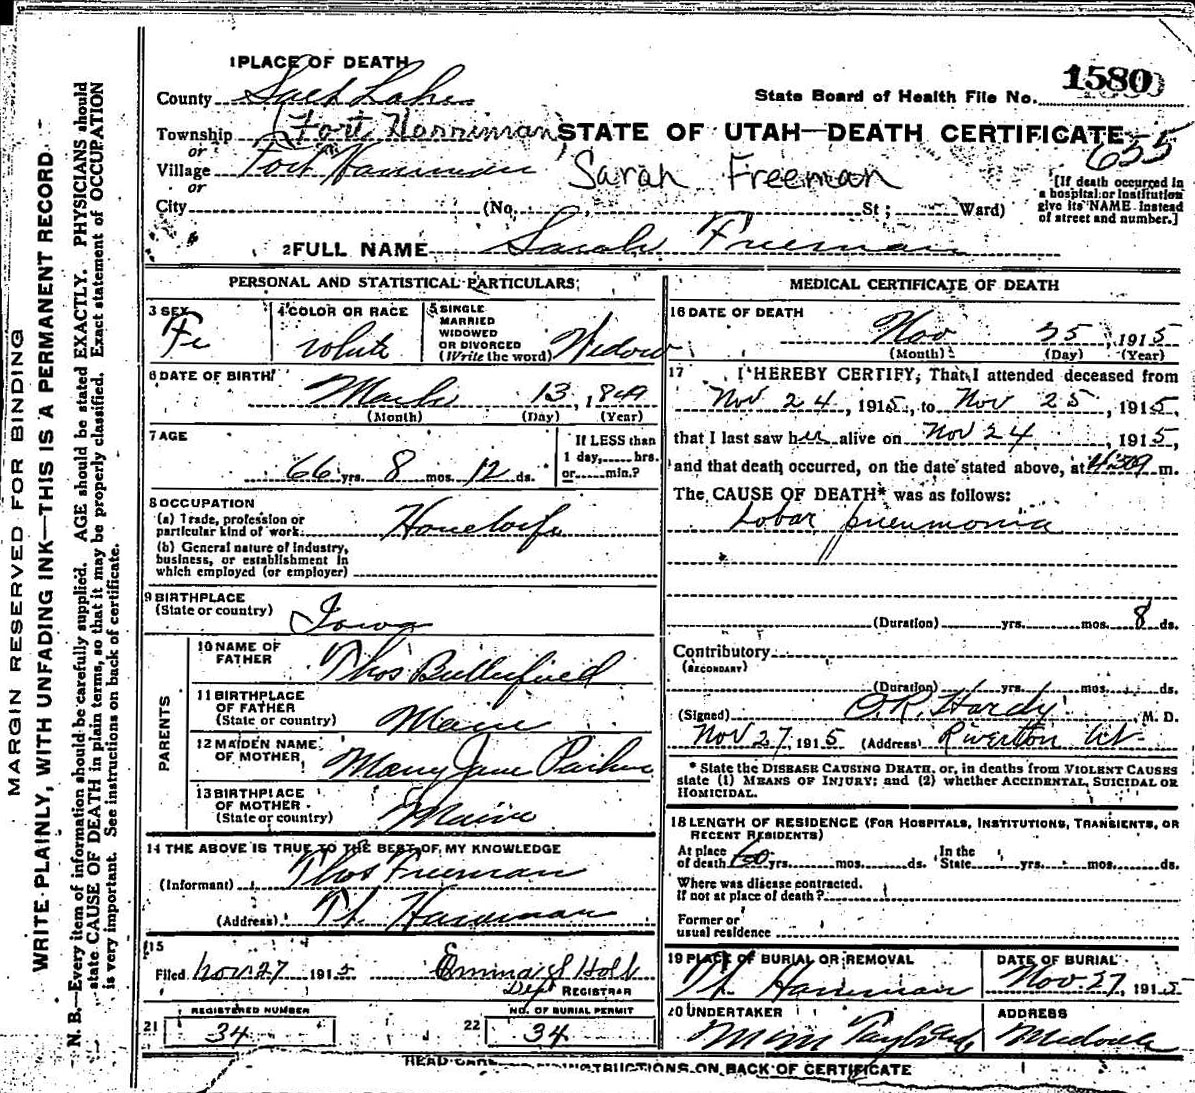 MARGIN RESERVED FOR BINDING
WRITE PLAINLY, WITH UNFADING INK—THIS IS A PERMANENT RECORD
N. B.—Every item of information should be carefully supplied. AGE should be stated EXACTLY. PHYSICIANS should
state CAUSE OF DEATH in plain terms, so that it may be properly classified. Exact statement of OCCUPATION
is very important. See instructions on back of certificate.
1 PLACE OF DEATH
County Salt Lake
State Board of Health File No. 1580
Township Fort Herriman STATE OF UTAH—DEATH CERTIFICATE
655
or
Village Fort Harriman Sarah Freeman
or
City (No. St; Ward)
[If death occurred in
a hospital or institution
give its NAME instead
of street and number.]
2 FULL NAME Sarah Freeman
PERSONAL AND STATISTICAL PARTICULARS
3 SEX
Fe
4 COLOR OR RACE
white
5 SINGLE
MARRIED
WIDOWED
OR DIVORCED
(Write the word) Widow
6 DATE OF BIRTH
March 13, 1849
(Month) (Day) (Year)
7 AGE
66 yrs. 8 mos. 12 ds.
If LESS than
1 day, hrs.
or min.?
8 OCCUPATION
(a) Trade, profession or
particular kind of work Housewife
(b) General nature of industry,
business, or establishment in
which employed (or employer)
9 BIRTHPLACE
(State or country) Iowa
PARENTS
10 NAME OF
FATHER Thos Butterfield
11 BIRTHPLACE
OF FATHER
(State or country) Maine
12 MAIDEN NAME
OF MOTHER Mary Jane Parker
13 BIRTHPLACE
OF MOTHER
(State or country) Maine
14 THE ABOVE IS TRUE TO THE BEST OF MY KNOWLEDGE
(Informant) Thos Freeman
(Address) Ft. Harriman
15
Filed Nov 27 1915 Emma S Holt
Dept REGISTRAR
21 REGISTERED NUMBER
34
22 NO. OF BURIAL PERMIT
34
MEDICAL CERTIFICATE OF DEATH
16 DATE OF DEATH
Nov 25, 1915
(Month) (Day) (Year)
17 I HEREBY CERTIFY, That I attended deceased from
Nov 24, 1915, to Nov 25, 1915,
that I last saw her alive on Nov 24, 1915,
and that death occurred, on the date stated above, at m.
The CAUSE OF DEATH* was as follows:
Lobar pneumonia
(Duration) yrs. mos. 8 ds.
Contributory
(SECONDARY)
(Duration) yrs. mos. ds.
(Signed) O.R. Hardy M. D.
Nov 27, 1915 (Address) Riverton Ut
* State the DISEASE CAUSING DEATH, or, in deaths from VIOLENT CAUSES
state (1) MEANS OF INJURY; and (2) whether ACCIDENTAL, SUICIDAL OR
HOMICIDAL.
18 LENGTH OF RESIDENCE (FOR HOSPITALS, INSTITUTIONS, TRANSIENTS, OR
RECENT RESIDENTS)
At place
of death 60 yrs. mos. ds. In the
State yrs. mos. ds.
Where was disease contracted.
If not at place of death?
Former or
usual residence
19 PLACE OF BURIAL OR REMOVAL
Ft. Harriman
DATE OF BURIAL
Nov 27, 1915
20 UNDERTAKER
ADDRESS
Midvale
INSTRUCTIONS ON BACK OF CERTIFICATE